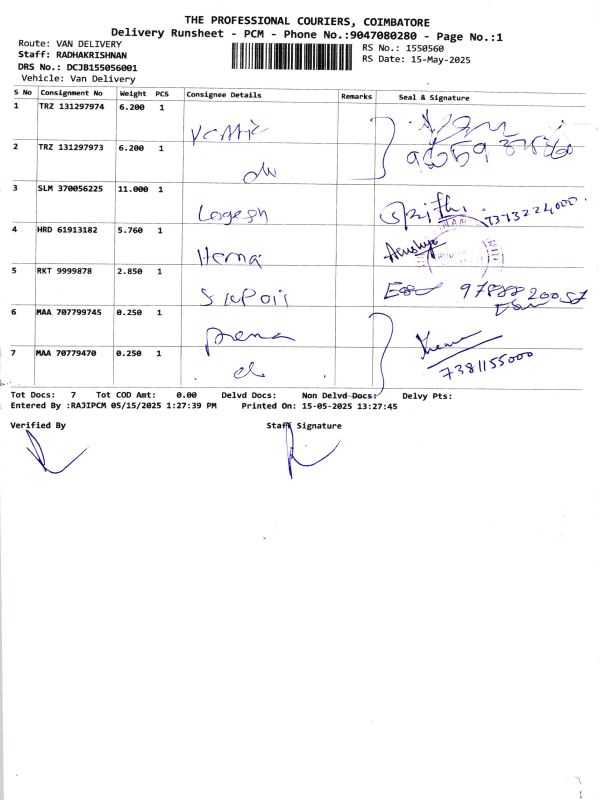 THE PROFESSIONAL COURIERS, COIMBATORE
Delivery Runsheet - PCM - Phone No.:9047080280 - Page No.:1
Route: VAN DELIVERY
RS No.: 1550560
Staff: RADHAKRISHNAN
RS Date: 15-May-2025
DRS No.: DCJB155056001
Vehicle: Van Delivery
S No Consignment No Weight PCS Consignee Details Remarks Seal & Signature
1 TRZ 131297974 6.200 1
2 TRZ 131297973 6.200 1
do
3 SLM 370056225 11.000 1
Logesh
7373224000
4 HRD 61913182 5.760 1
Hema
5 RKT 9999878 2.850 1
6 MAA 707799745 0.250 1
prema
7 MAA 70779470 0.250 1
do
7381155000
Tot Docs: 7 Tot COD Amt: 0.00 Delvd Docs: Non Delvd Docs: Delvy Pts:
Entered By :RAJIPCM 05/15/2025 1:27:39 PM Printed On: 15-05-2025 13:27:45
Verified By Staff Signature